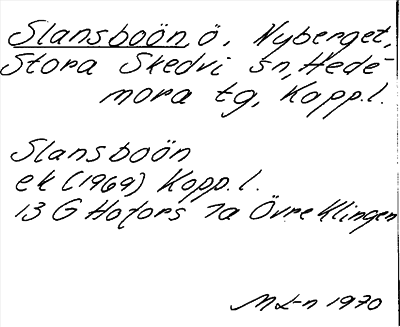 Slansboön, ö, Nyberget,
Stora Skedvi sn, Hede-
mora tg, Kopp.l.
Slansboön
ek (1969) Kopp.l.
13 G Hofors 7a Övre Klingen
M L-n 1970